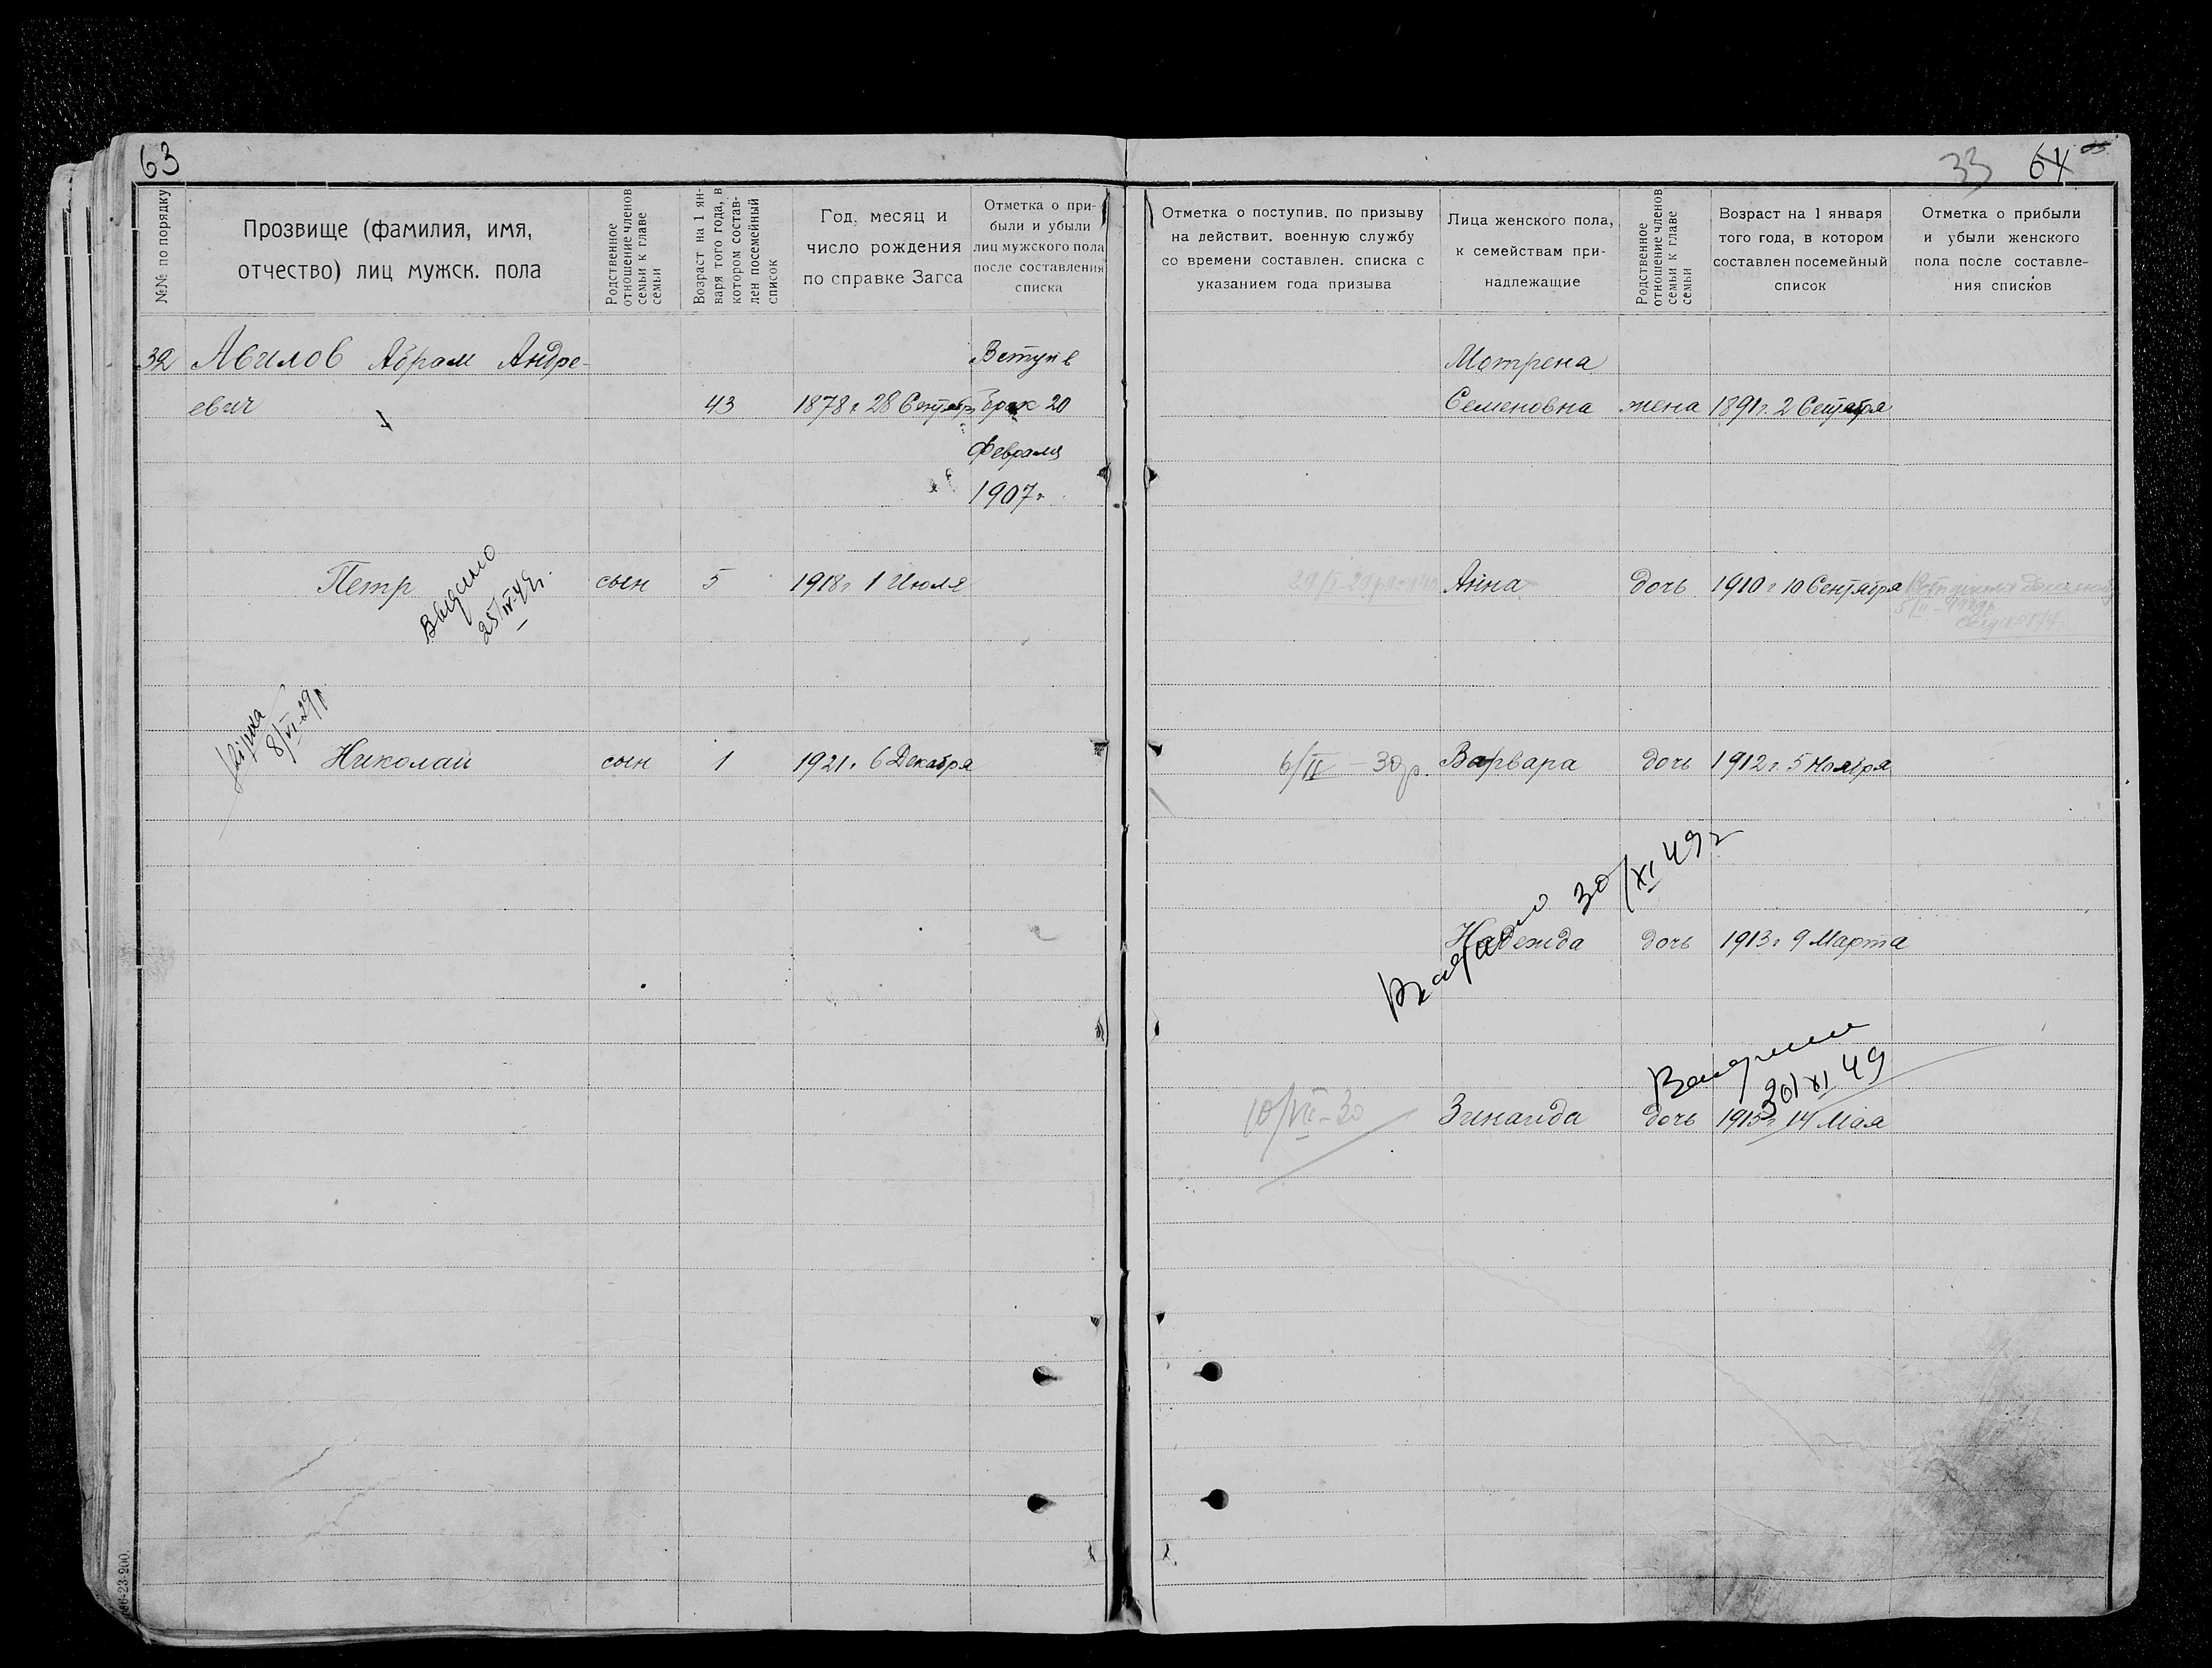 63
№№ по порядку
Прозвище (фамилия, имя,
отчество) лиц мужск. пола
Родственное
отношение членов
семьи к главе
семьи
Возраст на 1 ян-
варя того года, в
котором состав-
лен посемейный
список
Год, месяц и
число рождения
по справке Загса
Отметка о при-
были и убыли
лиц мужского пола
после составления
списка
32 Авилов Абрам Андре- Вступ в
евич 43 1878 г. 28 Сентябр брак 20
Февраля
1907 г.
Петр сын 5 1918 г. 1 Июля
Выдано
25/IV-49г.
8/VI-29р
Николай сын 1 1921 г. 6 Декабря
66-23-200.
33 64 об.
Отметка о поступив. по призыву
на действит. военную службу
со времени составлен. списка с
указанием года призыва
Лица женского пола,
к семействам при-
надлежащие
Родственное
отношение членов
семьи к главе
семьи
Возраст на 1 января
того года, в котором
составлен посемейный
список
Отметка о прибыли
и убыли женского
пола после составле-
ния списков
Мотрена
Семеновна жена 1891 г. 2 Сентября
Анна дочь 1910 г 10 Сентября
6/II - 30р. Варвара дочь 1912 г. 5 Ноября
30/XI 49 г
Надежда дочь 1913 г 9 Марта
30/XI 49
10/VII-30 Зинаида дочь 1915 г 14 Мая